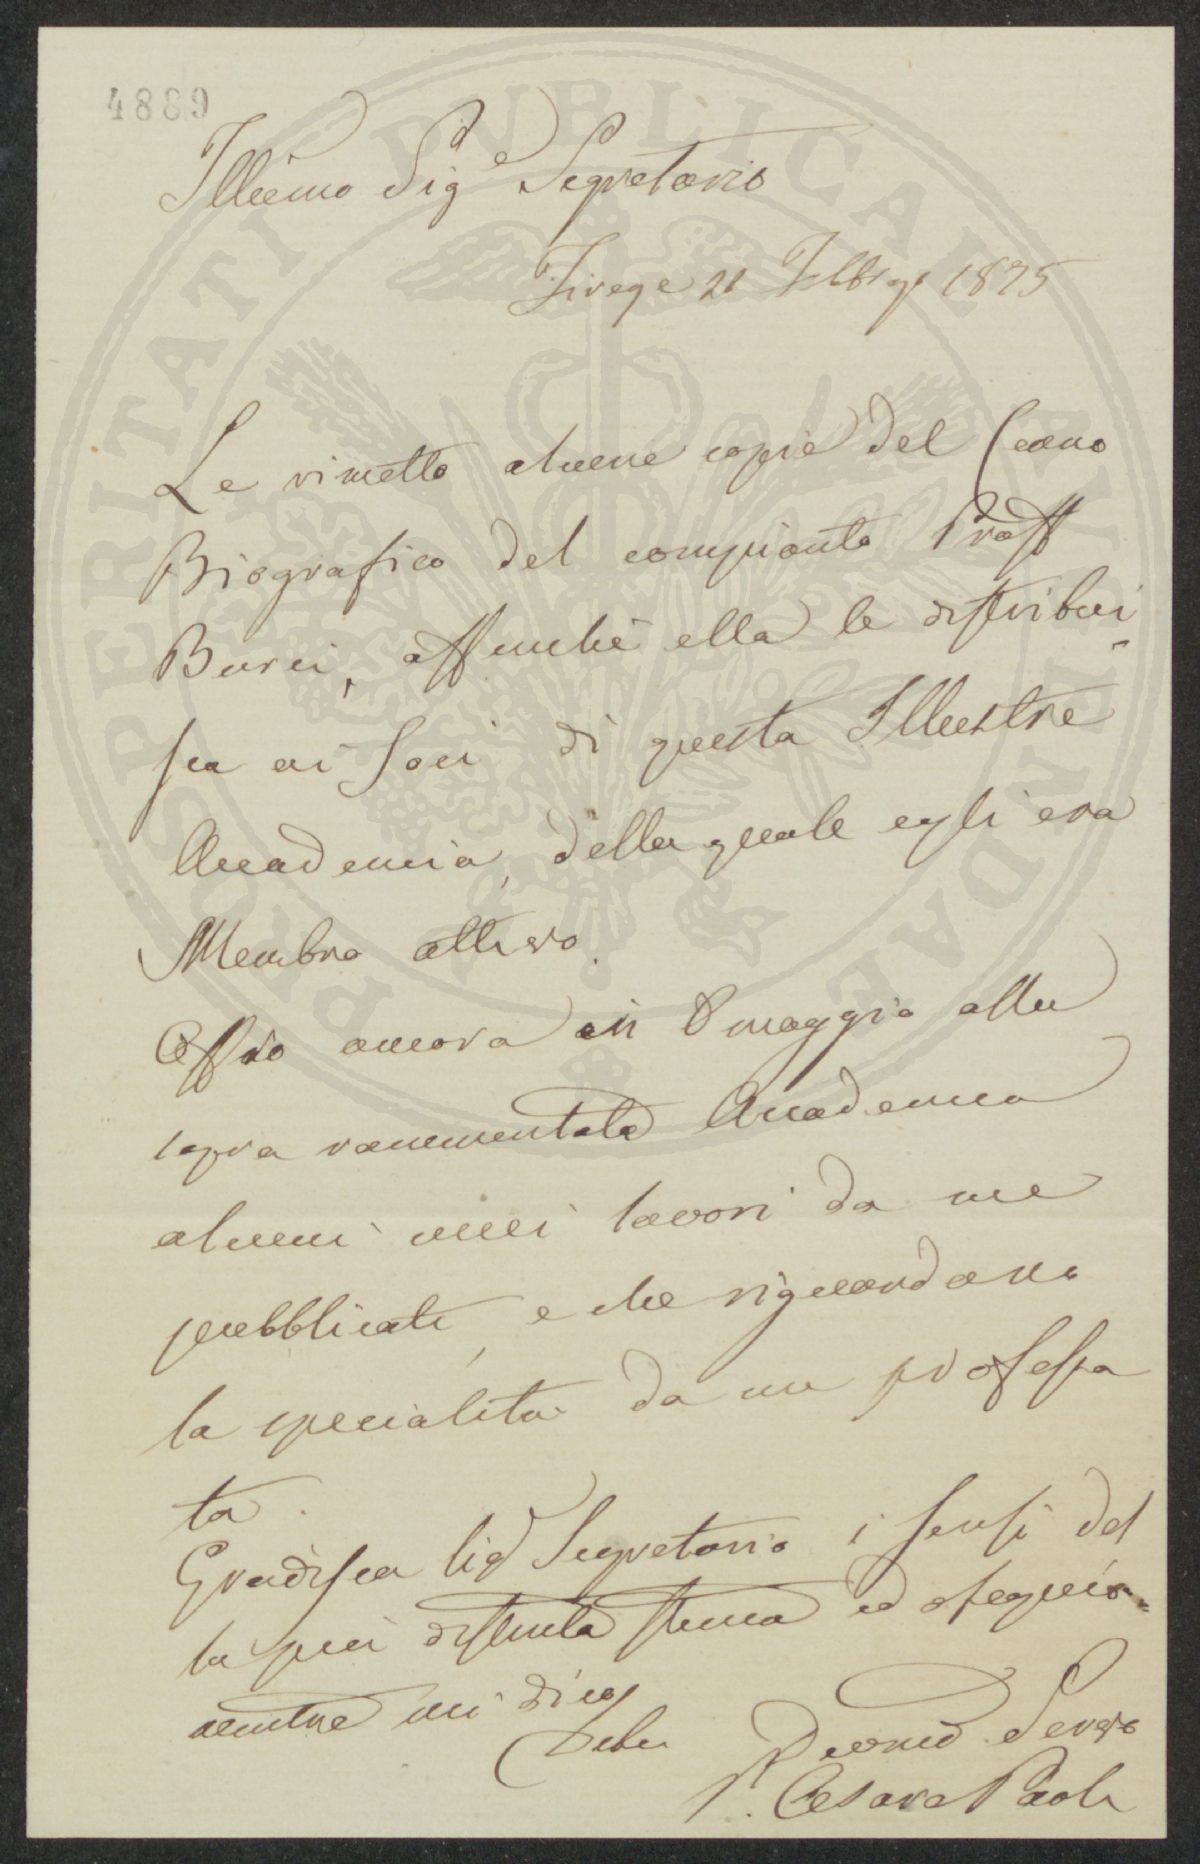 4889
Illcimo Sig.e Segretario
Firenze 21 Febbrajo 1875
Le rimetto alcune copie del Cenno
Biografico del compianto Proff
Burci, affinchè ella le distribui
sca ai Soci di questa Illustre
Accademia, della quale egli era
Membro attivo.
Offro ancora in Omaggio alla
sopra rammentata Accademia
alcuni miei lavori da me
pubblicati, e che riguardano
la specialità da me professa
ta.
Gradisca Sig Segretario i sensi del
la più distinta stima ed ossequio
mentre mi dico
Devmo Servo
D. Cesare Paoli
PROSPERITATI PUBLICAE AUGENDAE